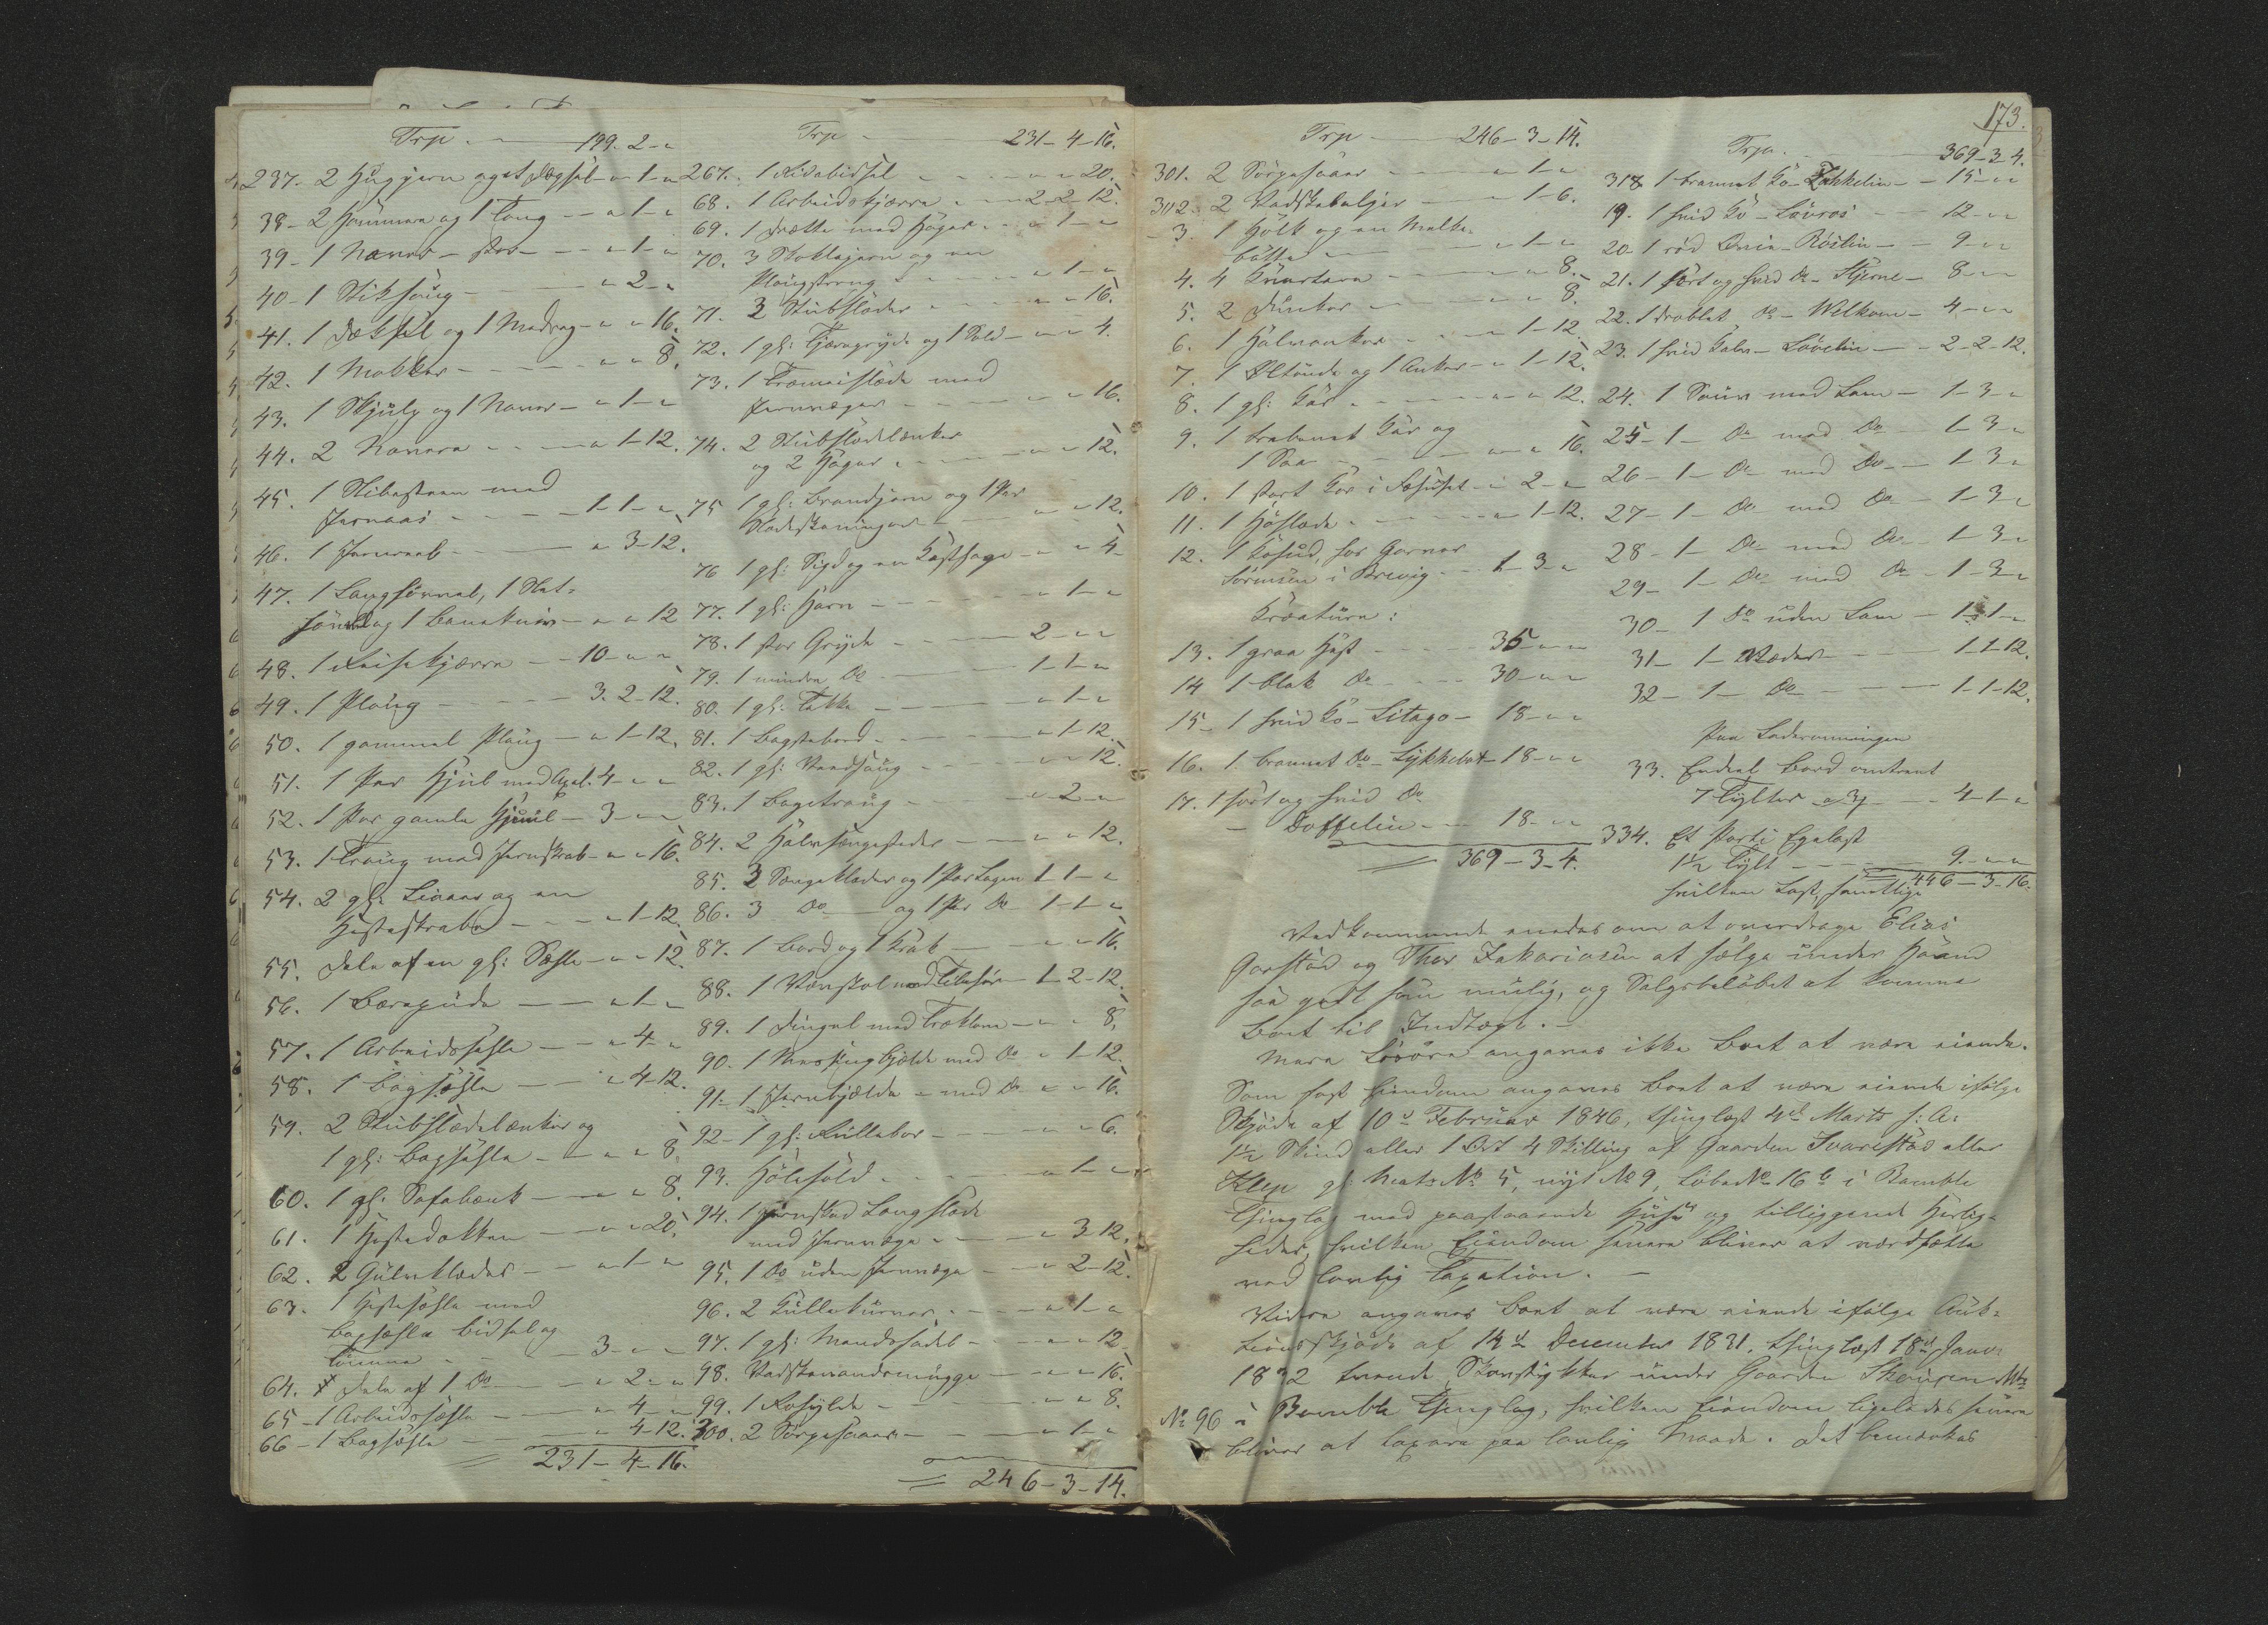 Trp. 199. 2 "
237. 2 Hugjern og et " 1 "
38 - 2 Hammere og 1 Tang - " 1 "
39 - 1 Naver - stor - " 1 "
40 - 1 Stiksaug - " 2 "
41. 1 og 1 - " " 16.
42. 1 - " " 8.
43. 1 Skjulp og 1 Naver - " 1 "
44. 2 Navere - " 1-12.
45. 1 Slibesteen med
Jernaas - 1-1-"
46. 1 Jernreeb - " 3-12.
47. 1 1 Slet-
og 1 Baandkniv - " " 12
48. 1 Reisekjærre - 10 - " "
49. 1 Ploug - 3. 2-12.
50. 1 gammel Ploug - " 1-12.
51. 1 Par Hjul med Axel. 4 - " "
52. 1 Par gamle Hjuul - 3 - " "
53. 1 Traug med Jernskrab - " " 16.
54. 2 gl: Liaaer og en
Hesteskrabe - " 1-12.
55. Dele af en gl: Sæhle - " " 12.
56. 1 Bærepude - " 1 "
57. 1 Arbeidssæhle - " 4 "
58. 1 Bagsæhle - " 4-12.
59. 2 Stubslædelænker og
1 gl: Bagsæhle - " " 8.
60. 1 gl. Sofabænk - " " 8.
61. 1 Hestedækken - " " 20.
62. 2 Gulvklæder - " 1 "
63. 1 Hestesæhle med
Bagsæhle Bidsel og
Tømme - 3 - " "
64. Dele af 1 Do - " 2 - "
65 - 1 Arbeidssæhle - " 4 - "
66 - 1 Bagsæhle - " 4-12.
231-4-16.
Trp 231-4-16.
267. 1 Ridebidsel - " " 20.
68. 1 Arbeidskjærre - 2-2-12.
69. 1 Drætte med Hager - " 1 - "
70. 3 og en
Plougstreng - " 1 - "
71. 2 Stubslæder - " " 16.
72. 1 gl: Tjæregryde og 1 - " " 4.
73. 1 med
- " " 16.
74. 2 Stubslædelænker
og 2 Hager - " " 12.
75 1 gl: Brandjern og 1 Par
- " " 12.
76 1 gl: Sigd og en - " " 4
77. 1 gl: Harv - " 1 - "
78. 1 stor Gryde - 2 - " "
79. 1 mindre Do - 1-1-"
80. 1 gl: Takke - " 1 - "
81. 1 Bagstebord - " 1-12.
82. 1 gl: Vandsaug - " " 12.
83. 1 Bagetraug - " 2 - "
84. 2 Halmsængesteder - " " 12.
85. 3 Sengeklæder og 1 Par Lagen 1-1-"
86. 3 Do og 1 Par Do 1-1-"
87. 1 Bord og 1 Krak - " " 16.
88. 1 Vævstol med Tilbehør - 1-2-12.
89. 1 Dingel med Træklave - " " 8.
90. 1 Messingbjelde med Do - " 1-12.
91. 1 Jernbjelde - med Do " " 16.
92 - 1 gl: Rullebør - " " 6.
93. - " 1 - "
94. 1 jernskod Langslæde
med - " 3-12.
95. 1 Do uden - " 2-12.
96. 2 - " 1 - "
97. 1 gl: Mandssadel - " " 12
98. Vadskevandsmugge - " " 16.
99. 1 - " " 8.
300. 2 Sørpesaaer - " 1 - "
246-3-14.
173.
Trp 246-3-14.
301. 2 Sørpesaaer - " 1 - "
302 - 2 Vadskebaljer - " 1-6.
- 3. 1 Hölk og en Melke-
bøtte - " 1 - "
4. 4 - " " 8.
5. 2 Dunker - " " 8.
6. 1 Halvanker - " 1-12
7. 1 Øltønde og 1 Anker - " 1-12.
8. 1 gl: Kar - " " 12.
9. 1 Kar og
1 Saa - " " 16.
10. 1 stort Kar i Fæhuset - " 2 - "
11. 1 Höslæde - " 1-12.
12. 1 Kohud, hos Garver
Sörensen i Brevig - 1-3-"
Kreature:
13. 1 graa Hest - 35 - " "
14 1 blak Do - 30 - " "
15 - 1 hvid Ko - Litago - 18 - " "
16. 1. brannet Do - Lykkebot - 18 - " "
17. 1 sort og hvid Do
- Doffelin - 18 - " "
369-3-4.
Trp. 369-3-4.
318 1 brannet Ko - - 15 - " "
19. 1 hvid Ko - Lövros - 12 - " "
20 - 1 rød Qvie - Röslin - 9 - " "
21. 1 sort og hvid Do - Stjerne - 8 - " "
22. 1 droblet Do - Wilkom - 4 - " "
23. 1 hvid Kalv - - 2-2-12.
24. 1 Sau med Lam - 1-3-"
25 - 1 - Do med Do - 1-3-"
26 - 1 - Do med Do - 1-3-"
27 - 1 - Do med Do - 1-3-"
28 - 1 - Do med Do - 1-3-"
29 - 1 - Do med Do - 1-3-"
30 - 1 Do uden Lam - 1-1-"
31 - 1 - Væder - 1-1-12.
32 - 1 - Do - 1-1-12.
Paa
33. Endeel Bord omtrent
7 Tylter a 3 - 4-1-"
334. Et Parti Egelast
1½ Tylt - 9. - " "
446-3-16.
hvilken Last, samtlige
Vedkommende enedes om at overdrage Elias
Gorstad og Thor Zakariasen at sælge under Haand
saa godt som mulig, og Salgsbeløbet at komme
Boet til Indtægt. -
Mere Løsøre angaves ikke Boet at være eiende.
Som fast Eiendom angaves Boet at være eiende ifølge
Skjøde af 10de Februar 1846, thinglæst 4de Marts s: A:
1½ Skind eller 1 Ort 4 Skilling af Gaarden Ivarestad eller
Klep gl: Matr: No 5, nyt No 9, Løbe No 16 b i Bamble
Thinglag med paastaaende Huse og tilliggende Herlig-
heder, hvilken Eiendom senere bliver at værdsætte
ved lovlig Taxation. -
Videre angaves Boet at være eiende ifølge Auk-
tionsskjøde af 14de December 1831. thinglæst 18de Janv:
1832 tvende Skovstykker under Gaarden Skougen Mtr
No 96 i Bamble Thinglag, hvilken Eiendom ligeledes senere
bliver at taxere paa lovlig Maade. Det bemærkes